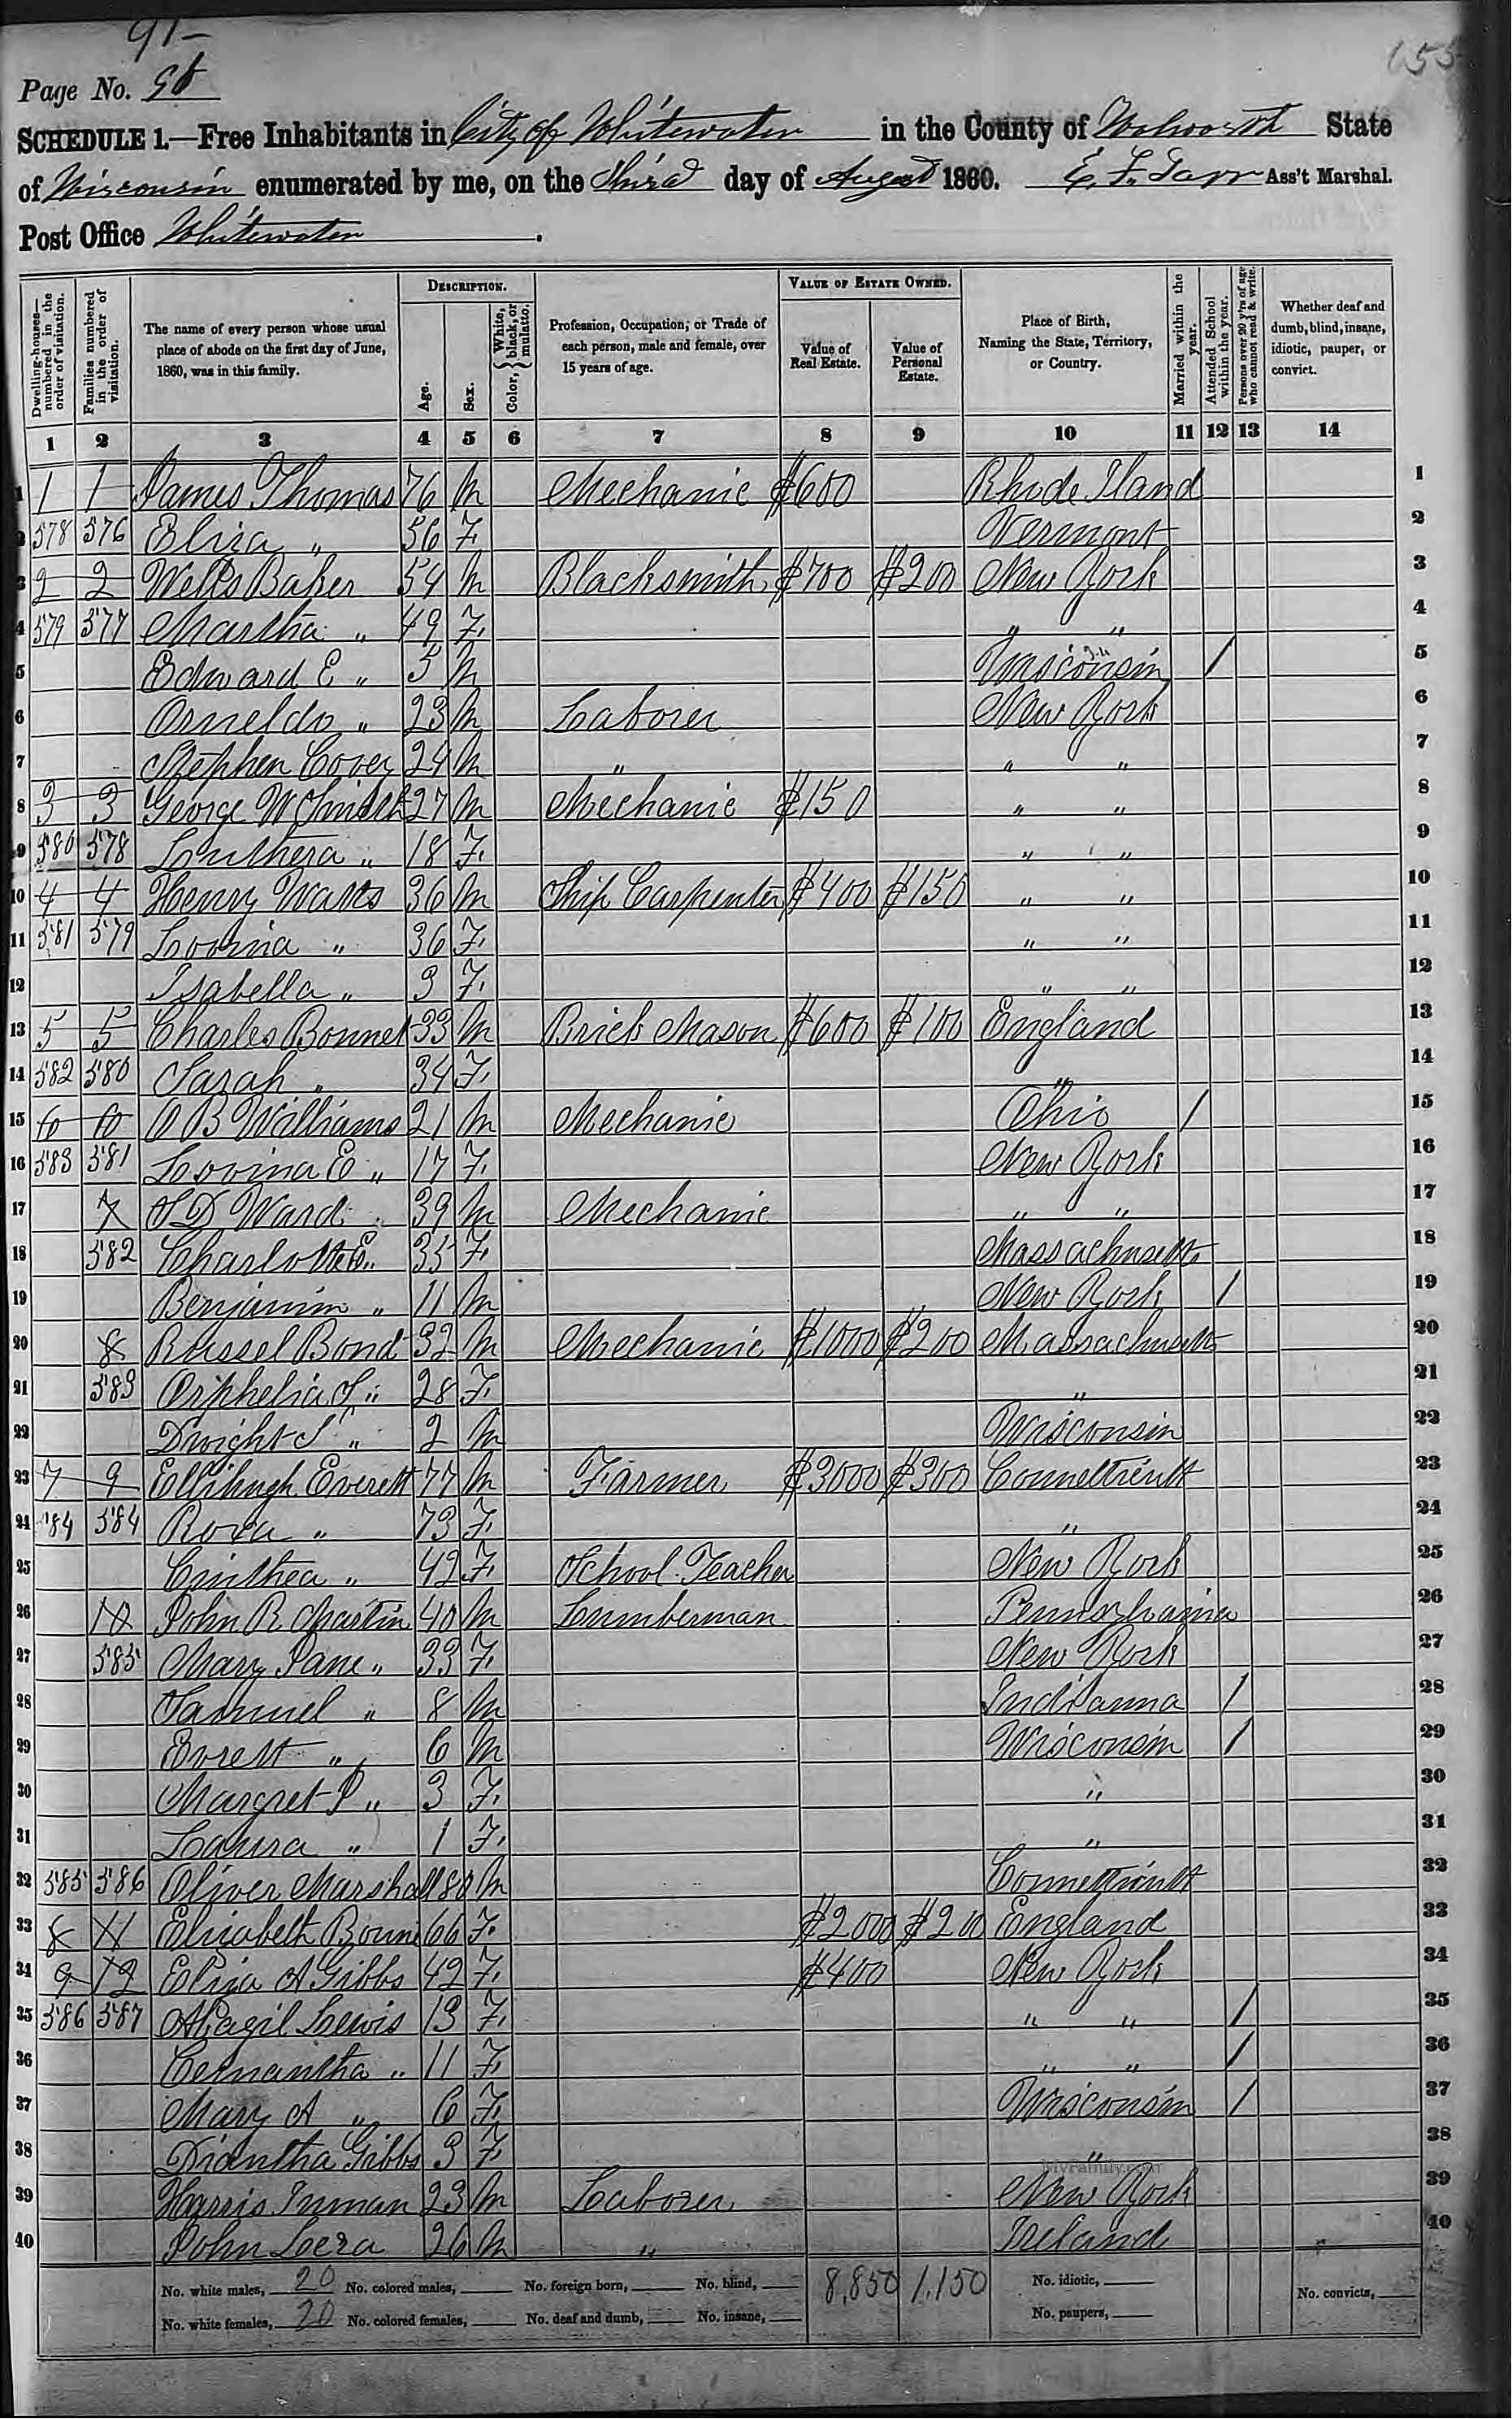 91-
155
Page No. 90
SCHEDULE 1.—Free Inhabitants in City of Whitewater in the County of Walworth State
of Wisconsin enumerated by me, on the Third day of August 1860. E. F. Tarr Ass't Marshal.
Post Office Whitewater.
Dwelling-houses—numbered in the order of visitation.
Families numbered in the order of visitation.
The name of every person whose usual place of abode on the first day of June, 1860, was in this family.
DESCRIPTION.
Age.
Sex.
Color, { White, black, or mulatto.
Profession, Occupation, or Trade of each person, male and female, over 15 years of age.
VALUE OF ESTATE OWNED.
Value of Real Estate.
Value of Personal Estate.
Place of Birth, Naming the State, Territory, or Country.
Married within the year.
Attended School within the year.
Persons over 20 y'rs of age who cannot read & write.
Whether deaf and dumb, blind, insane, idiotic, pauper, or convict.
1 2 3 4 5 6 7 8 9 10 11 12 13 14
1 1 1 James Thomas 76 M Mechanic $600 Rhode Iland 1
2 578 576 Eliza " 56 F. Vermont 2
3 2 2 Wells Baker 54 M Blacksmith $700 $200 New York 3
4 579 577 Martha " 49 F. " " 4
5 Edward E " 5 M Wisconsin / 5
6 Orneldo " 23 M Laborer New York 6
7 Stephen Cover 24 M " " " 7
8 3 3 George W 27 M Mechanic $150 " " 8
9 580 578 Luthera " 18 F. " " 9
10 4 4 Henry Watts 36 M Ship Carpenter $400 $150 " " 10
11 581 579 Lovina " 36 F. " " 11
12 Isabella " 3 F. " " 12
13 5 5 Charles Bonnet 33 M Brick Mason $600 $100 England 13
14 582 580 Sarah " 34 F. " 14
15 6 6 O B Williams 21 M Mechanic Ohio / 15
16 583 581 Lovina E " 17 F. New York 16
17 7 S D Ward 39 M Mechanic " " 17
18 582 Charlotte E " 35 F. Massachusetts 18
19 Benjamin " 11 M New York / 19
20 8 Russel Bond 32 M Mechanic $1000 $200 Massachusetts 20
21 583 Orphelia S " 28 F. " 21
22 Dwight S " 2 M Wisconsin 22
23 7 9 Ellihugh Everett 77 M Farmer $3000 $300 Connetticutt 23
24 584 584 Roxa " 73 F. " 24
25 Cinthea " 42 F. School Teacher New York 25
26 10 John R Martin 40 M Lumberman Pennsylvania 26
27 585 Mary Jane " 33 F. New York 27
28 Samuel " 8 M Indianna / 28
29 Evrett " 6 M Wisconsin / 29
30 Margret P " 3 F. " 30
31 Laura " 1 F. " 31
32 585 586 Oliver Marshall 80 M Connetticutt 32
33 8 11 Elizabeth 66 F. $2000 $200 England 33
34 9 12 Eliza A Gibbs 42 F. $400 New York 34
35 586 587 Abagil Lewis 13 F. " " / 35
36 Cemantha " 11 F. " " / 36
37 Mary A " 6 F. Wisconsin / 37
38 Diantha Gibbs 3 F. " 38
39 Harris Inman 23 M Laborer New York 39
40 John 26 M " Ireland 40
MyFamily.com
No. white males, 20 No. colored males, No. foreign born, No. blind, 8,850 1,150 No. idiotic, No. convicts,
No. white females, 20 No. colored females, No. deaf and dumb, No. insane, No. paupers,